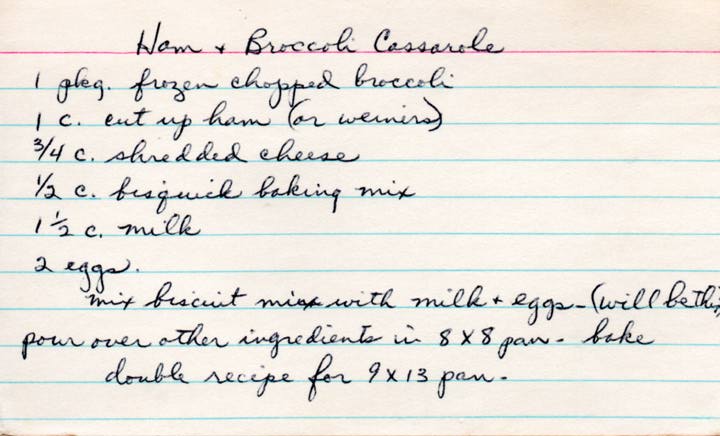 Ham + Broccoli Cassarole
1 pkg. frozen chopped broccoli
1 c. cut up ham (or weiners)
3/4 c. shredded cheese
1/2 c. bisquick baking mix
1 1/2 c. milk
2 eggs.
mix biscuit mix with milk + eggs - (will be thi
pour over other ingredients in 8 X 8 pan - bake
double recipe for 9 X 13 pan -